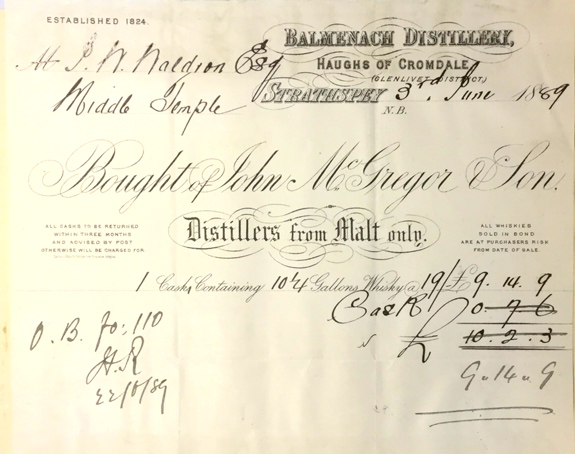 ESTABLISHED 1824.
BALMENACH DISTILLERY,
HAUGHS OF CROMDALE
(GLENLIVET DISTRICT,)
STRATHSPEY 3rd June 1889
N.B.
Esq
Middle Temple
Bought of John McGregor & Son.
Distillers from Malt only.
ALL CASKS TO BE RETURNED
WITHIN THREE MONTHS
AND ADVISED BY POST
OTHERWISE WILL BE CHARGED FOR
ALL WHISKIES
SOLD IN BOND
ARE AT PURCHASERS RISK
FROM DATE OF SALE.
1 Cask, Containing 10¼ Gallons Whisky @ 19/- £ 9. 14. 9
Cask 0. 7 6
£ 10. 2. 3
9 14 9
O.B. fo: 110